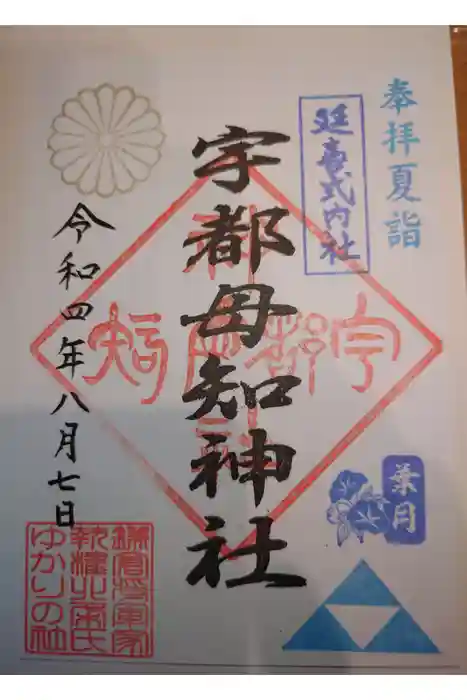 奉拝夏詣
延喜式内社
宇都母知神社
令和四年八月七日
葉月
鎌倉将軍家
執権北条氏
ゆかりの社